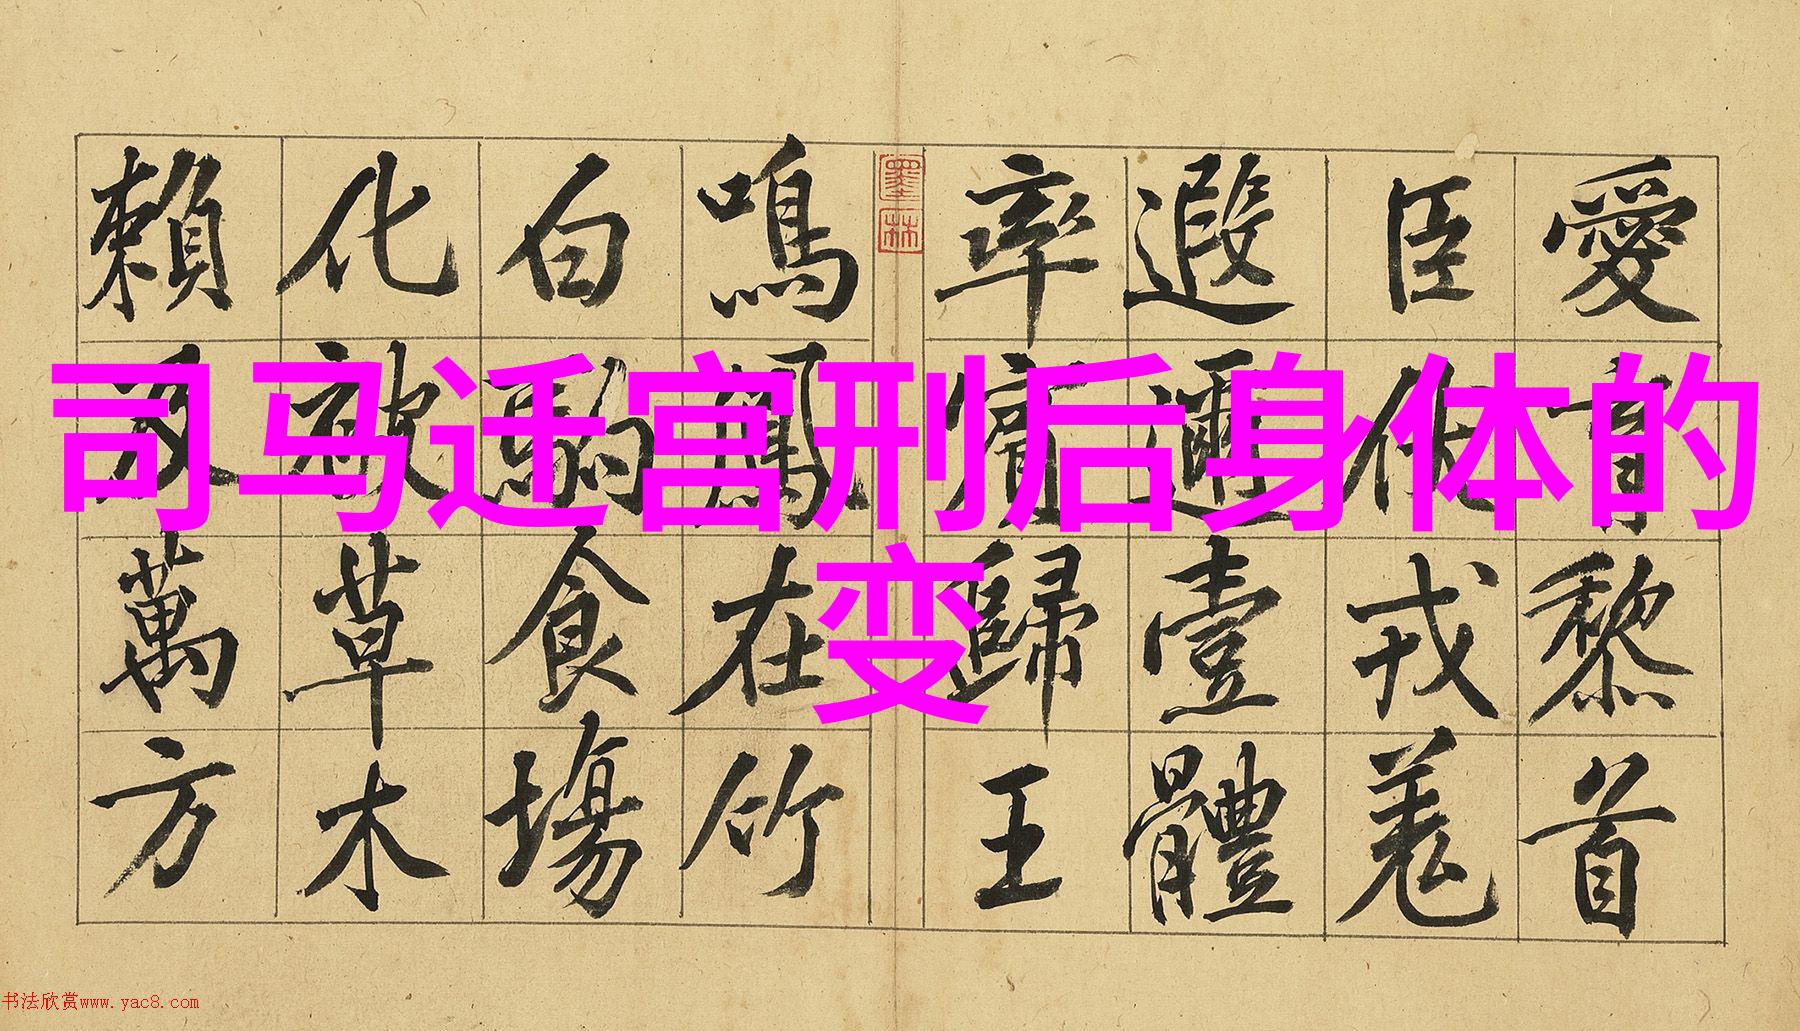 愛育黎首
臣伏戎羌
遐邇壹體
率賓歸王
墨林
鳴鳳在竹
白駒食場
化被草木
賴及萬方
司马迁宫刑后身体的
变
书法欣赏www.yac8.com